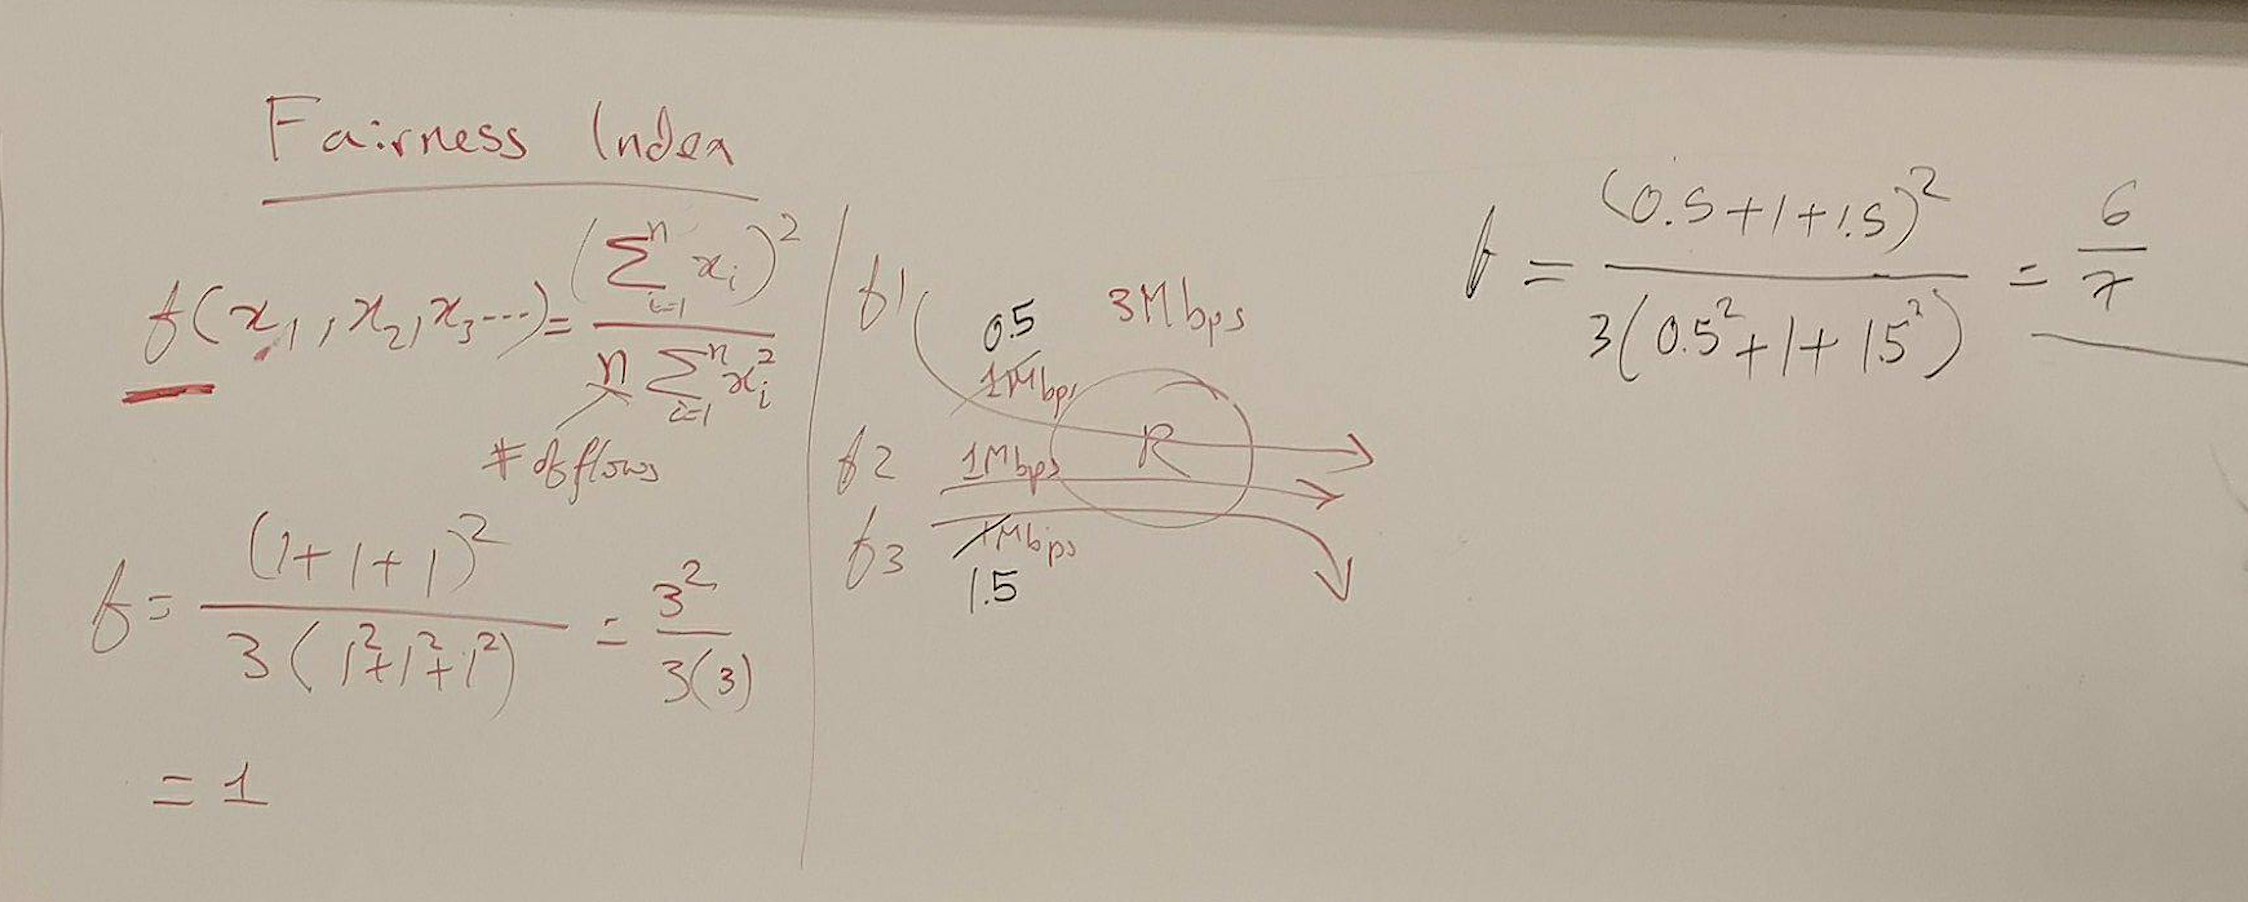 Fairness Index
f(x₁, x₂, x₃ ...) = (∑ⁿᵢ₌₁ xᵢ)² / n ∑ⁿᵢ₌₁ xᵢ²
# of flows
f = (1+1+1)² / 3(1²+1²+1²) = 3² / 3(3)
= 1
f1
0.5
3Mbps
1Mbps
R
f2 1Mbps
f3 1Mbps
1.5
f = (0.5+1+1.5)² / 3(0.5²+1+1.5²) = 6/7